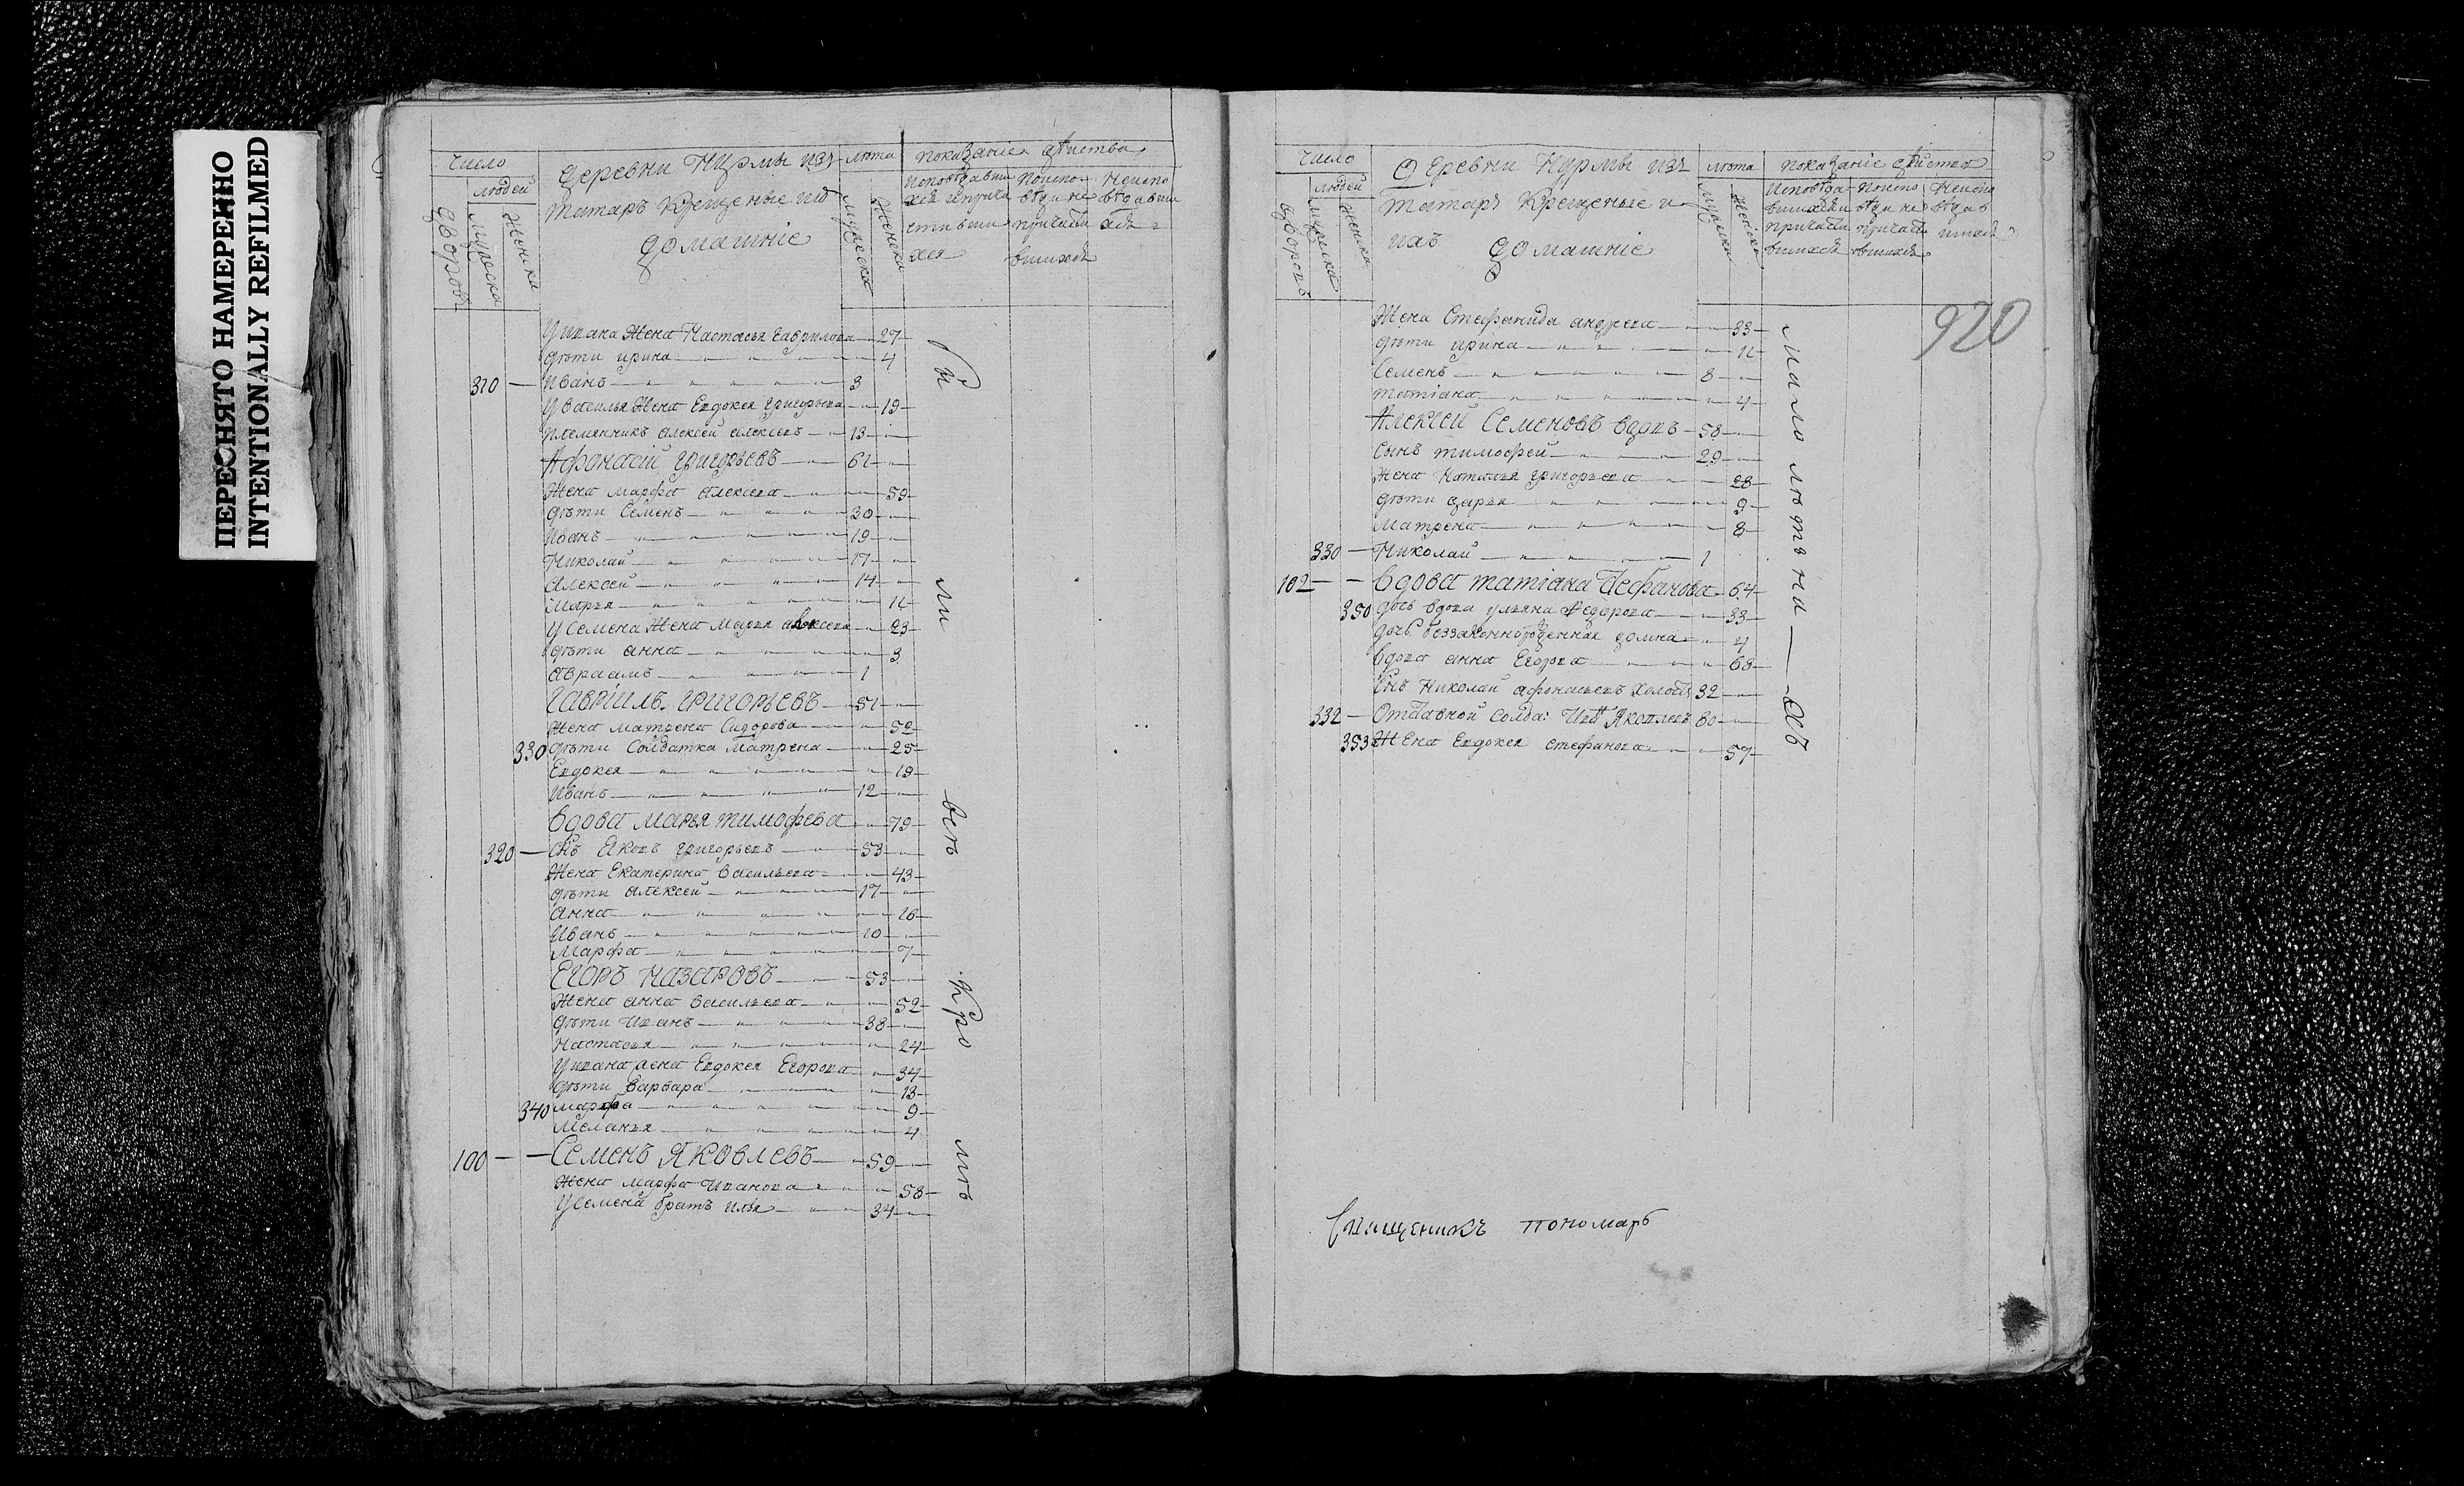 ПЕРЕСНЯТО НАМЕРЕННО
INTENTIONALLY REFILMED
число
людей
дворовъ
мужеска
женска
деревни Нурмы изъ
татаръ крещеные
домашніе
лѣта
мужеска
женска
показаніе
У ивана жена Настасья гаврилова 27
дѣти ирина 4
310 — Иванъ 3
У василья жена Евдокея григорьева 19
племянникъ алексей алексеевъ 13
Афонасій григорьевъ 61
жена марфа алексева 59
дѣти Семенъ 30
Иванъ 19
Николай 17
алексей 14
марья 11
у Семена жена Марья алексеева 23
дѣти анна 3
авраамъ 1
Гавріилъ григорьевъ 51
жена матрена Сидорова 52
330 дѣти солдатка матрена 25
Евдокея 19
Иванъ 12
Вдова марья тимофева 79
320 — Снъ Яковъ григорьевъ 53
жена Екатерина васильева 43
дѣти алексей 17
анна 16
Иванъ 10
марфа 7
Егоръ назаровъ 53
жена анна васильева 52
дѣти Иванъ 38
настасья 24
У ивана жена Евдокея Егорова 34
дѣти варвара 13
340 марфа 9
меланья 4
100 — — Семенъ Яковлевъ 59
жена марфа Иванова 58
У семена братъ илья 34
Бы
ли
всѣ
кро
мѣ
число
людей
дворовъ
мужеска
женска
Деревни Нурмы изъ
татаръ крещеные и
ихъ домашніе
лѣта
мужеска
женска
показаніе
920
жена Стефанида андреева 33
дѣти ирина 11
Семенъ 8
татіана 4
Алексей Семеновъ вдовъ 58
сынъ тимофей 29
жена наталья григорьева 28
дѣти дарья 9
матрена 8
330 — Николай 1
102 — — Вдова татіана Стефанова 64
350 дочь вдова ульяна федорова 33
дочь беззаконнорожденная домна 4
Вдова анна Егорова 68
Снъ Николай афонасьевъ холостъ 32
332 — Отставной солда: Яковлевъ 60
353 жена Евдокея стефанова 57
мало лѣтна
Священникъ пономарь